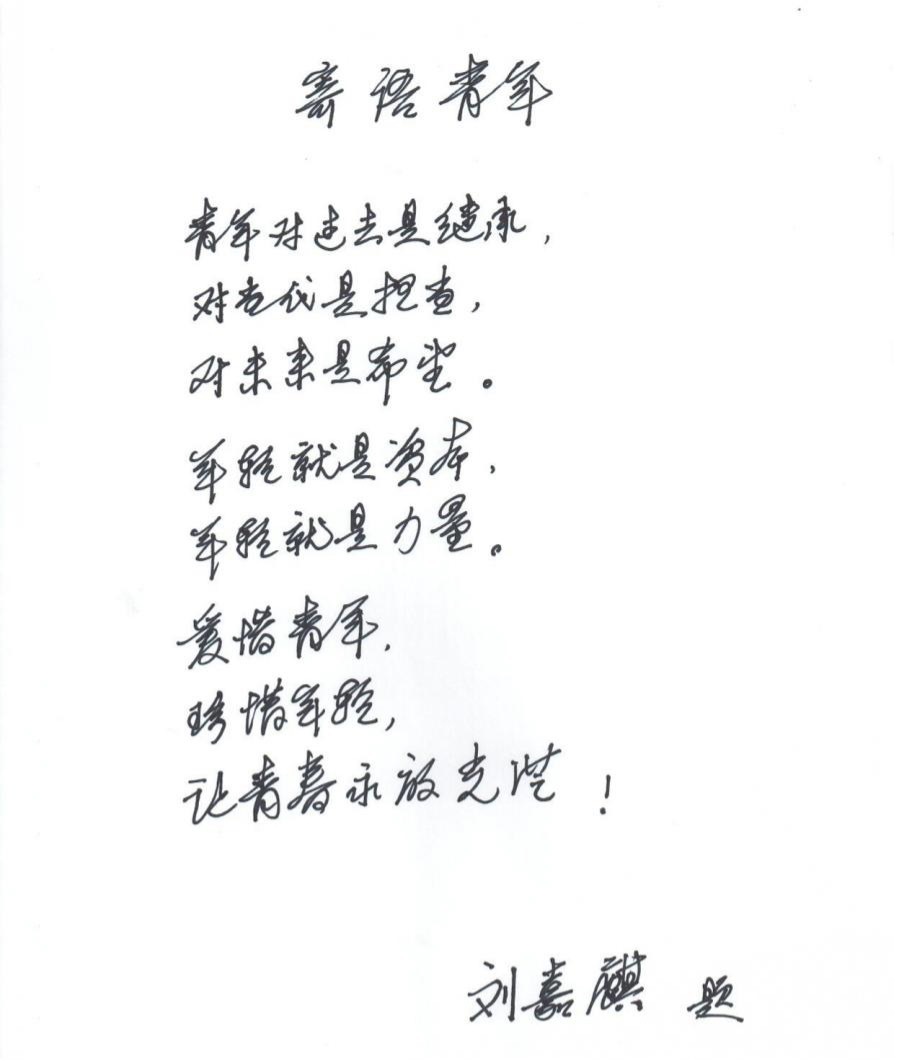 寄语青年
青年对过去是继承,
对当代是担当,
对未来是希望。
年轻就是资本,
年轻就是力量。
爱惜青年,
珍惜年轻,
让青春永放光芒!
刘嘉麒 题